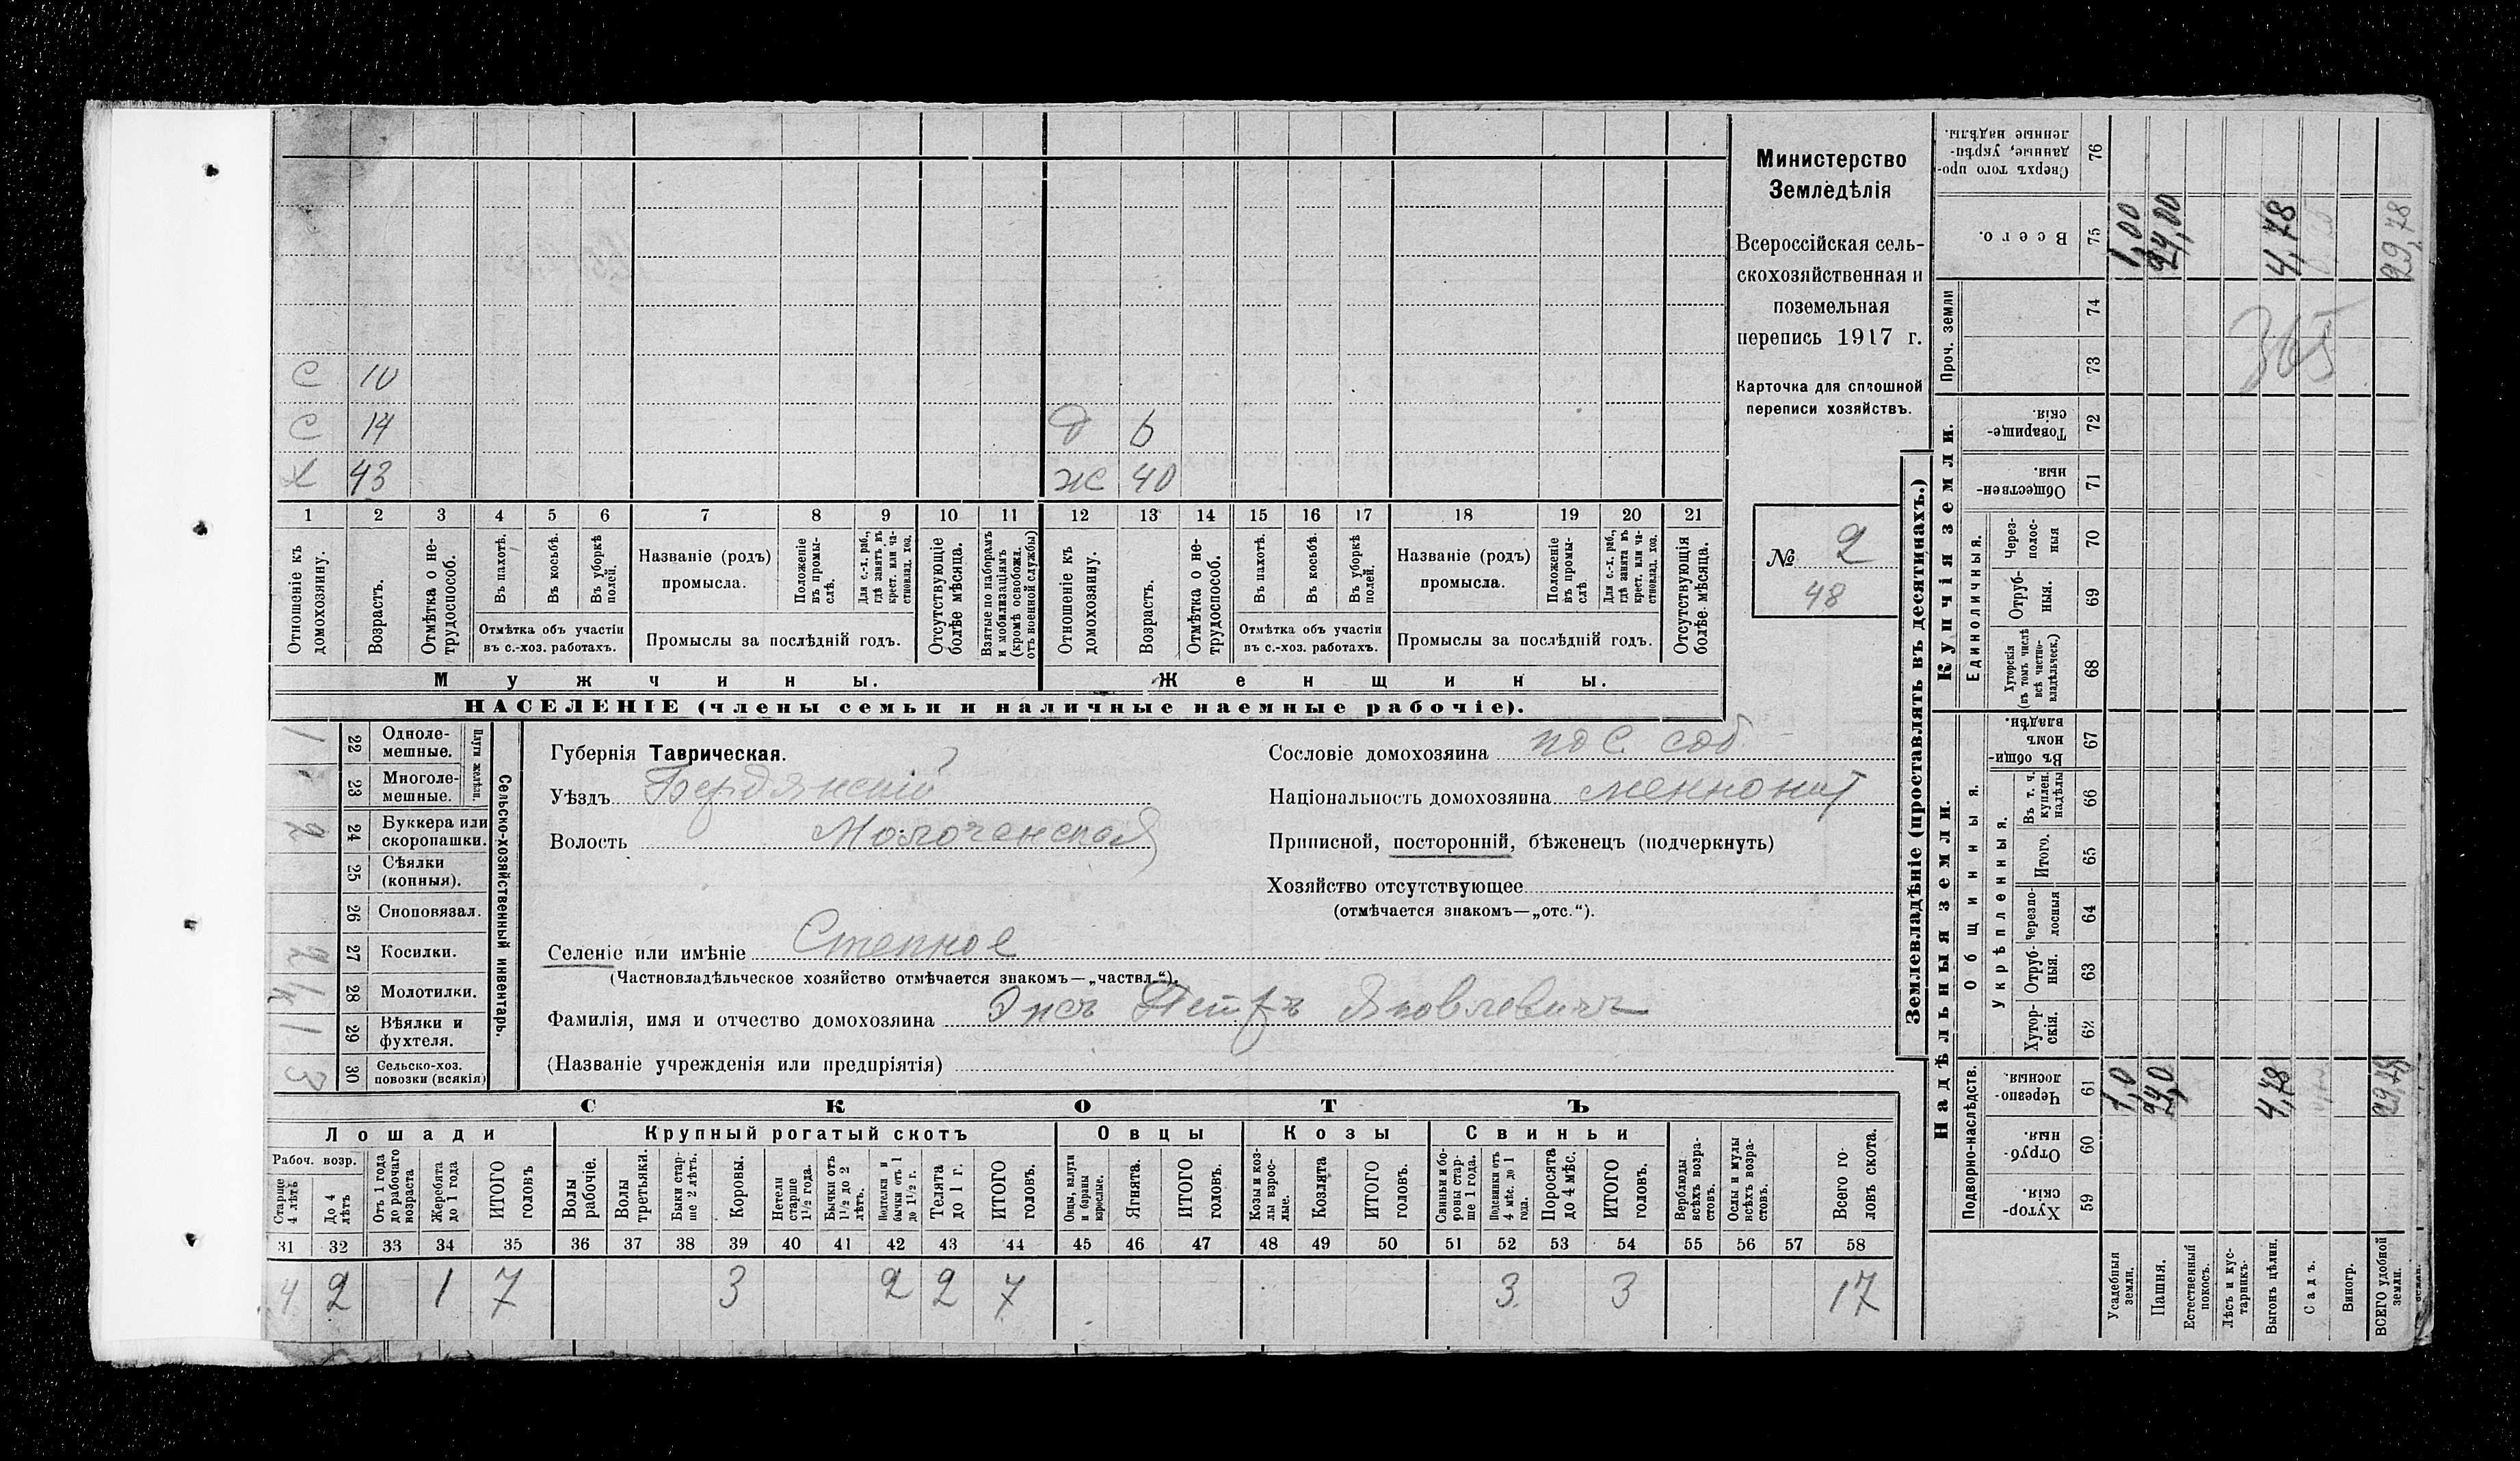 С 10
С 14
Х 43
Д 6
Ж 40
1 2 3 4 5 6 7 8 9 10 11 12 13 14 15 16 17 18 19 20 21
Отношеніе къ домохозяину.
Возрастъ.
Отмѣтка о не-
трудоспособ.
Въ пахотѣ.
Въ косьбѣ.
Въ уборкѣ
полей.
Отмѣтка объ участіи
въ с.-хоз. работахъ.
Названіе (родъ)
промысла.
Положеніе
въ промы-
слѣ.
Для с.-х. раб.,
гдѣ занятъ въ
крест. или ча-
стновлад. хоз.
Промыслы за послѣдній годъ.
Отсутствующіе
болѣе мѣсяца.
Взятые по наборамъ
и мобилизаціямъ
(кромѣ освобожд.
отъ военной службы)
Отношеніе къ
домохозяину.
Возрастъ.
Отмѣтка о не-
трудоспособ.
Въ пахотѣ.
Въ косьбѣ.
Въ уборкѣ
полей.
Отмѣтка объ участіи
въ с.-хоз. работахъ.
Названіе (родъ)
промысла.
Положеніе
въ промы-
слѣ
Для с.-х. раб.,
гдѣ занята въ
крест. или ча-
стновлад. хоз.
Промыслы за послѣдній годъ.
Отсутствующія
болѣе мѣсяца.
Мужчины.
Женщины.
НАСЕЛЕНІЕ (члены семьи и наличные наемные рабочіе).
Министерство
Земледѣлія
Всероссійская сель-
скохозяйственная и
поземельная
перепись 1917 г.
Карточка для сплошной
переписи хозяйствъ.
№ 2
48
Плуги желѣзн.
22 Одноле-
мешные. 1
23 Многоле-
мешные.
24 Буккера или
скоропашки. 2
25 Сѣялки
(конныя).
26 Сноповязал.
27 Косилки. 2
28 Молотилки.
29 Вѣялки и
фухтеля. 1
30 Сельско-хоз.
повозки (всякія) 3
Сельско-хозяйственный инвентарь.
Губернія Таврическая.
Уѣздъ Бердянскій
Волость Молочанская
Селеніе или имѣніе Степное
(Частновладѣльческое хозяйство отмѣчается знакомъ—„частвл.“).
Фамилія, имя и отчество домохозяина Энсъ Петръ Яковлевичъ
(Названіе учрежденія или предпріятія)
Сословіе домохозяина пос. соб
Національность домохозяина меннонит
Приписной, посторонній, бѣженецъ (подчеркнуть)
Хозяйство отсутствующее
(отмѣчается знакомъ—„отс.“).
СКОТЪ
Лошади
Рабоч. возр.
Старше
4 лѣтъ
До 4
лѣтъ
Отъ 1 года
до рабочаго
возраста
Жеребята
до 1 года
ИТОГО
головъ
Крупный рогатый скотъ
Волы
рабочіе.
Волы
третьяки.
Быки стар-
ше 2 лѣтъ.
Коровы.
Нетели
старше
1½ года.
Бычки отъ
1½ до 2
лѣтъ.
Подтелки и
бычки отъ 1
до 1½ г.
Телята
до 1 г.
ИТОГО
головъ.
Овцы
Овцы, валухи
и бараны
взрослые.
Ягнята.
ИТОГО
головъ.
Козы
Козы и коз-
лы взрос-
лые.
Козлята
ИТОГО
головъ.
Свиньи
Свиньи и бо-
ровы стар-
ше 1 года.
Подсвинки отъ
4 мѣс. до 1
года.
Поросята
до 4 мѣс.
ИТОГО
головъ.
Верблюды
всѣхъ возра-
стовъ.
Ослы и мулы
всѣхъ возра-
стовъ.
Всего го-
ловъ скота.
31 32 33 34 35 36 37 38 39 40 41 42 43 44 45 46 47 48 49 50 51 52 53 54 55 56 57 58
4 2 1 7 3 2 2 7 3 3 17
Землевладѣніе (проставлять въ десятинахъ.)
Надѣльныя земли.
Подворно-наслѣдств.
Хутор-
скія. 59
Отруб-
ныя. 60
Черезпо-
лосныя. 61
Общинныя.
Укрѣпленныя.
Хутор-
скія. 62
Отруб-
ныя. 63
Черезпо-
лосныя 64
Итого. 65
Въ т. ч.
куплен.
надѣлы 66
Въ общи-
номъ
владѣн. 67
Купчія земли.
Единоличныя.
Хуторскія
(въ томъ числѣ
всѣ частно-
владѣльческ.) 68
Отруб-
ныя. 69
Через-
полос-
ныя 70
Обществен-
ныя. 71
Товарище-
скія. 72
Проч. земли
73 74
Всего. 75
Сверхъ того про-
данные, укрѣп-
ленные надѣлы. 76
Усадебныя
земли. 1,0 1,00
Пашня. 24,0 24,00
Естественный
покосъ.
Лѣсъ и кус-
тарникъ.
Выгонъ цѣлин. 4,78 4,78
Садъ.
Виногр.
ВСЕГО удобной
земли. 29,78 29,78
365